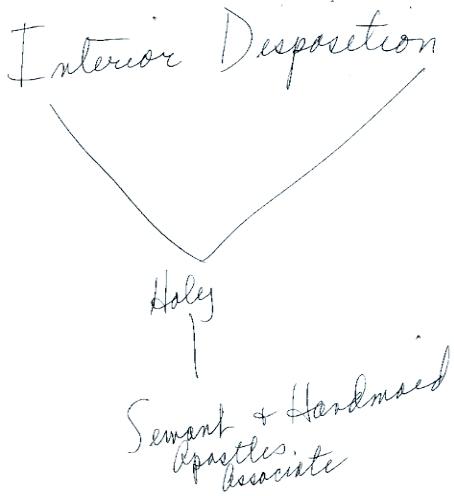 Interior Disposition
Holy
Servant + Handmaid
Apostles
Associate